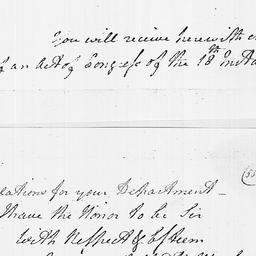 You will receive herewith
of an act of Congress of the 18th Insta
(55
cations for your Department -
I have the Honor to be Sir
With Respect & Esteem